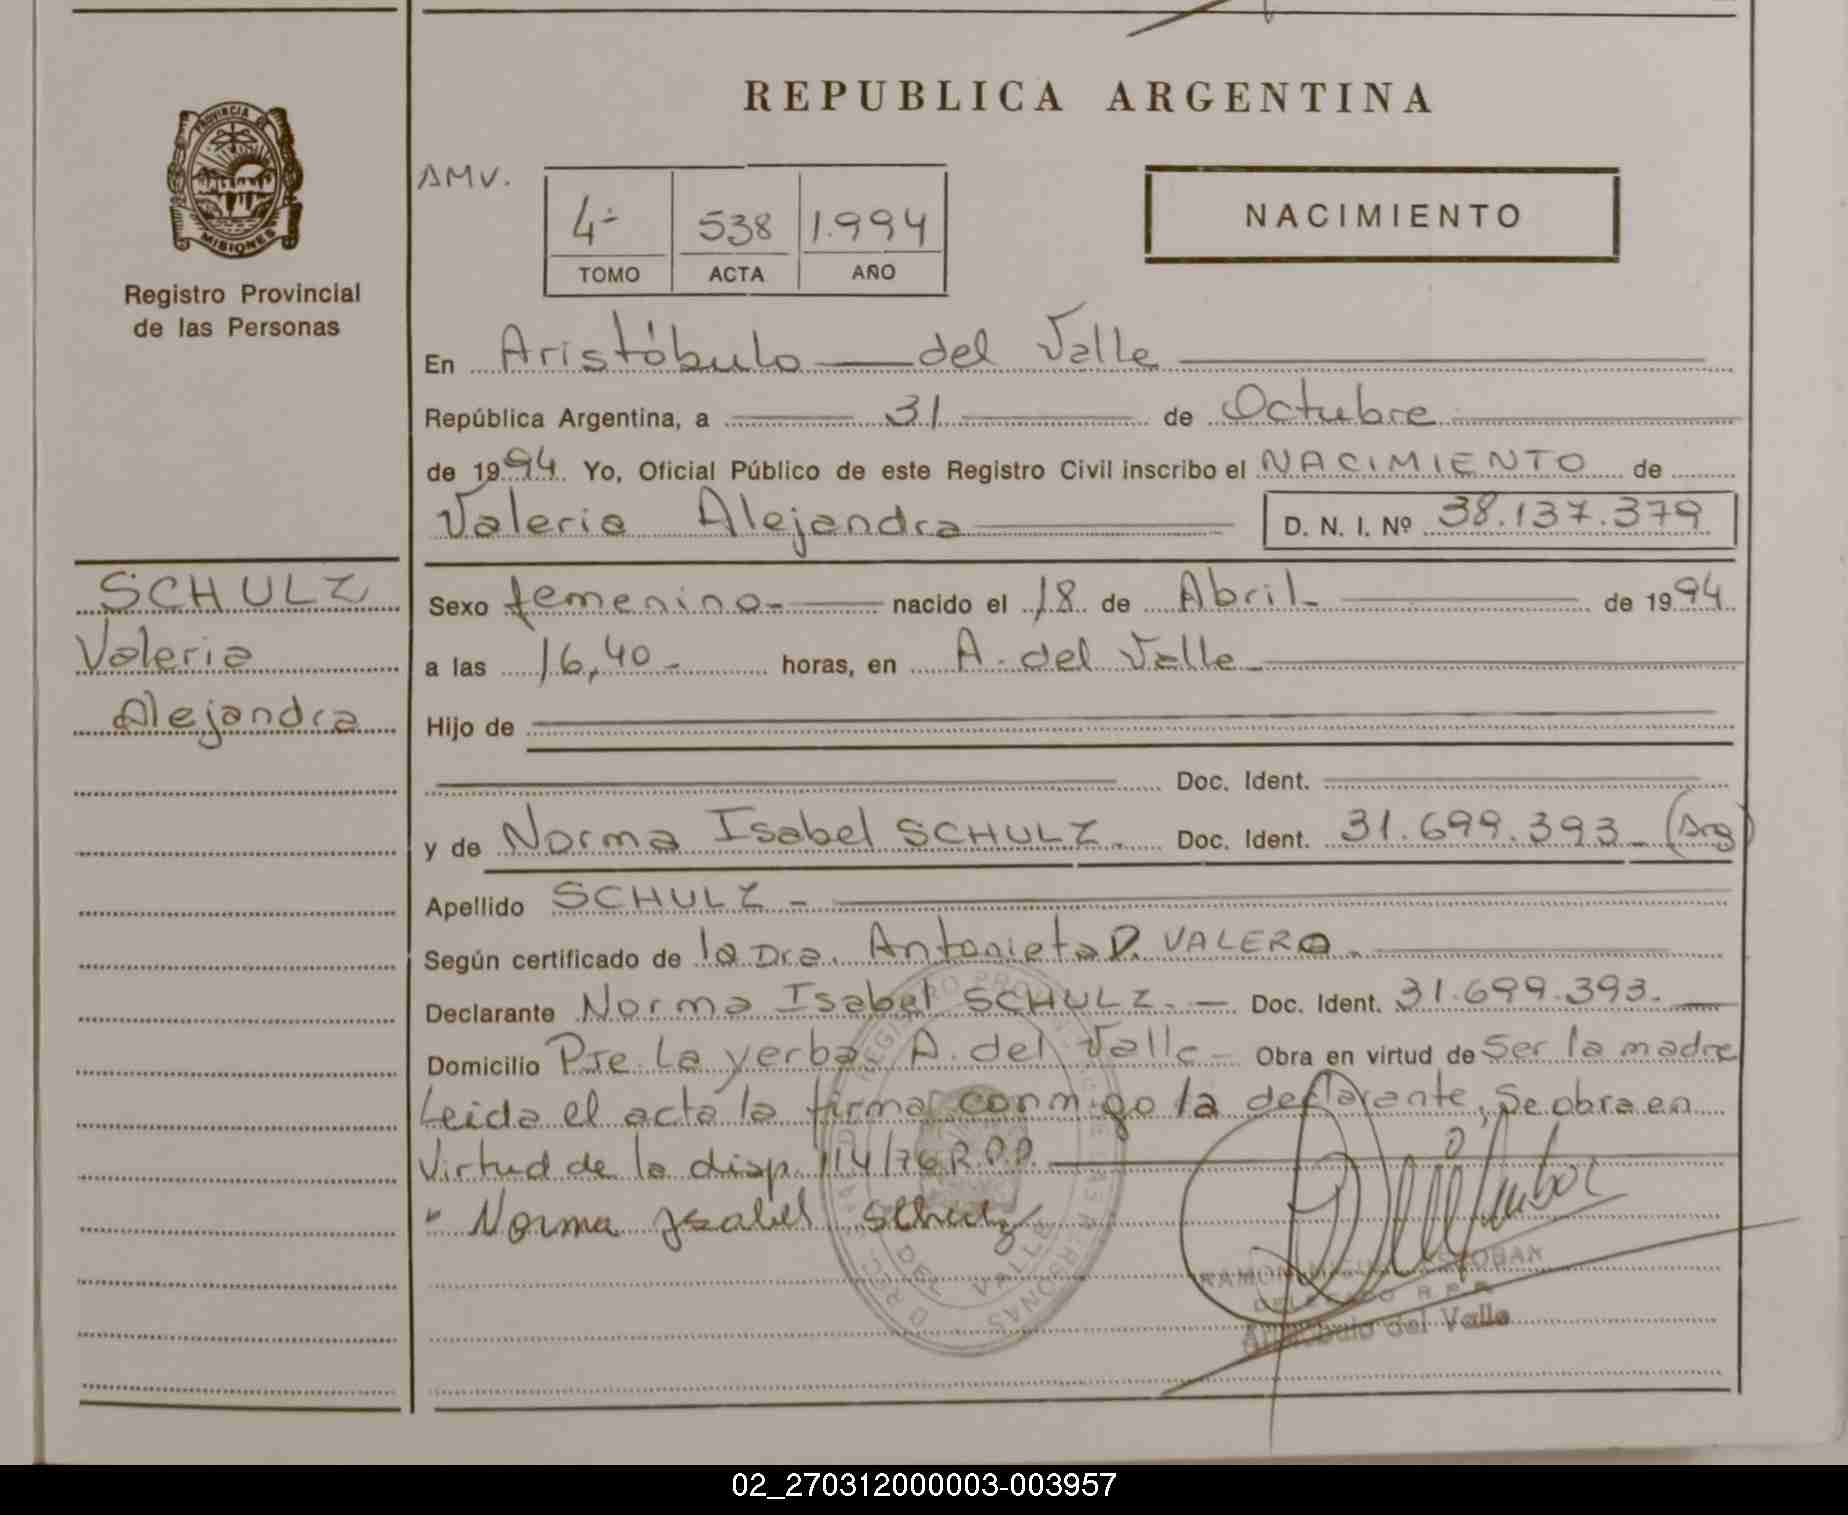 REPUBLICA ARGENTINA
PROVINCIA DE
MISIONES
Registro Provincial
de las Personas
AMV.
4º 538 1.994
TOMO ACTA AÑO
NACIMIENTO
En Aristóbulo del Valle
República Argentina, a 31 de Octubre
de 1994. Yo, Oficial Público de este Registro Civil inscribo el NACIMIENTO de
Valeria Alejandra D. N. I. Nº 38.137.379
SCHULZ
Valeria
Alejandra
Sexo femenino.- nacido el 18 de Abril- de 1994.
a las 16,40.- horas, en A. del Valle-
Hijo de
Doc. Ident.
y de Norma Isabel SCHULZ. Doc. Ident. 31.699.393- (Arg)
Apellido SCHULZ -
Según certificado de la Dra. Antonieta D. VALERO.-
Declarante Norma Isabel SCHULZ.- Doc. Ident. 31.699.393.-
Domicilio Pje. La yerba, A. del Valle- Obra en virtud de Ser la madre
Leida el acta la firma conmigo la declarante, Se obra en
Virtud de la disp. 114/76 R.P.P.
Norma Ysabel Schulz
RAMON MIGUEL ESCOBAR
DELEGADO R.P.P.
Aristobulo del Valle
02_270312000003-003957